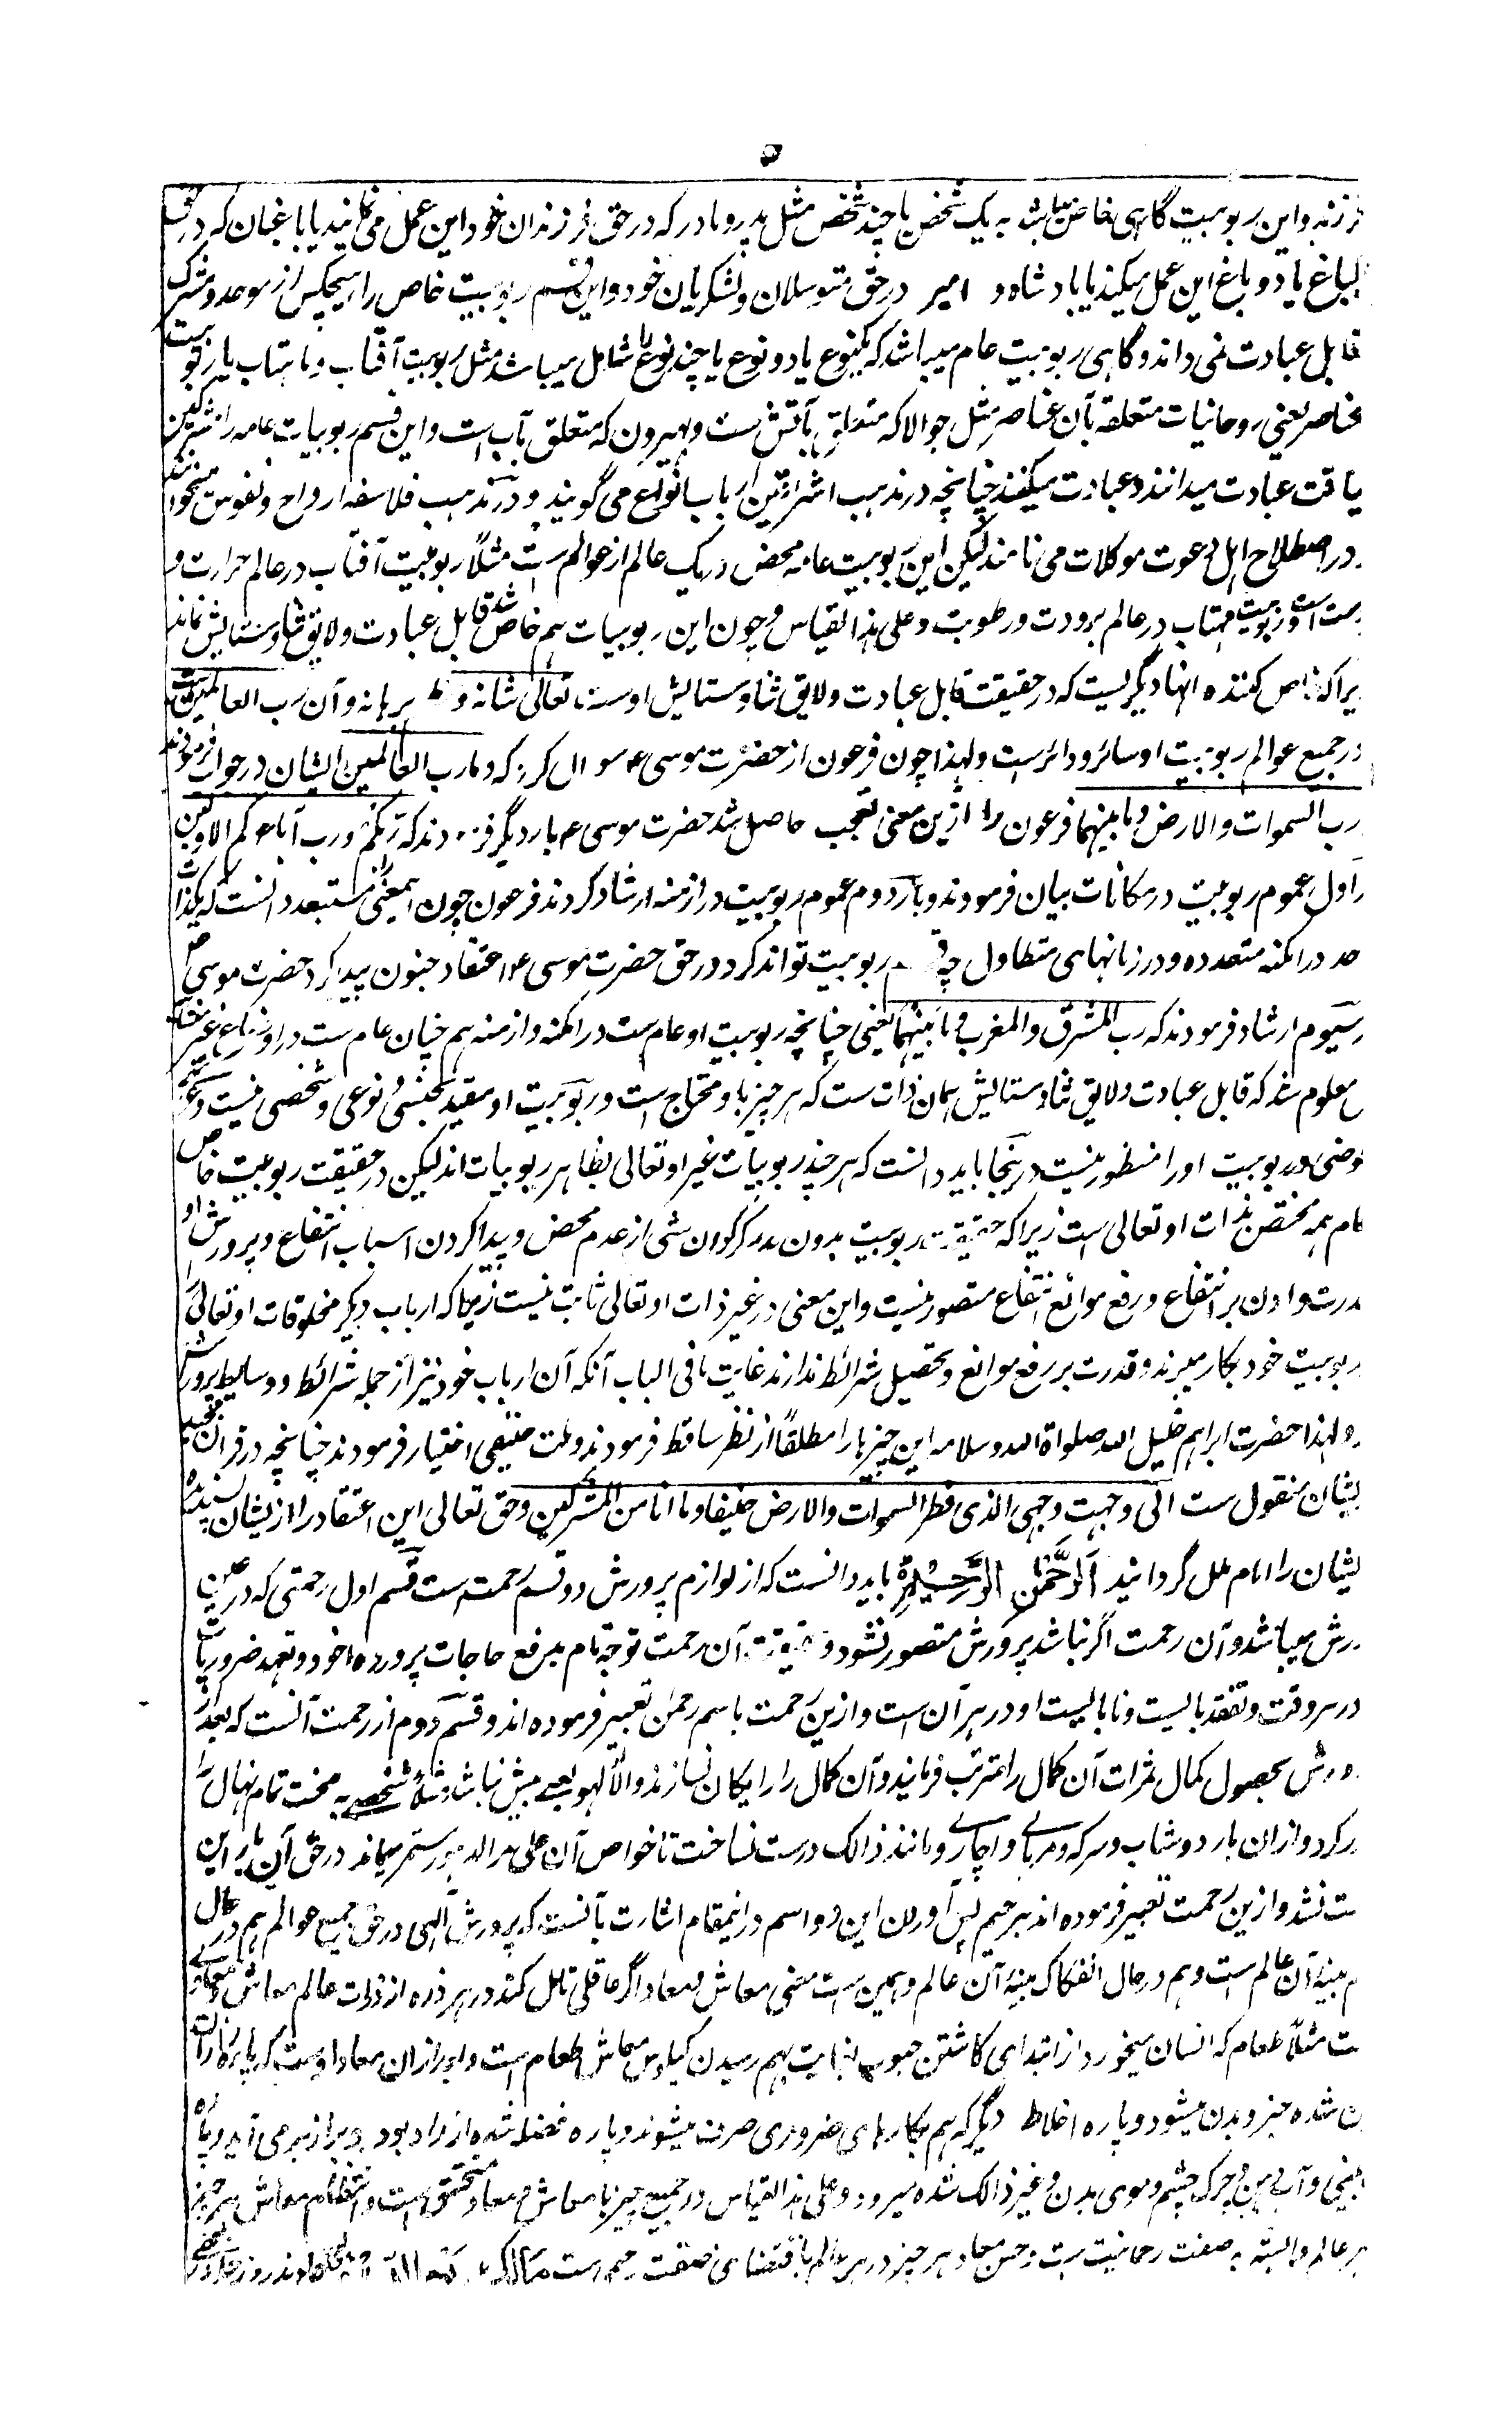 ۵
فرزند و این ربوبیت گاهی خاص میباشد به یک شخص یا چند شخص مثل پدر و مادر که در حق فرزندان خود این عمل می نمایند یا باغبان که در حق
باغ یا دو باغ این عمل میکند یا بادشاه و امیر در حق متوسلان و لشکریان خود و این قسم ربوبیت خاص را هیچکس از موحد و مشرک
قابل عبادت نمی داند و گاهی ربوبیت عام میباشد که بیکنوع یا دو نوع یا چند نوع را شامل میباشد مثل ربوبیت آفتاب و ماهتاب یا ربوبیت
عناصر یعنی روحانیات متعلقه بآن عناصر مثل جوالا که متعلق بآتش ست و بهیرون که متعلق بآب است و این قسم ربوبیات عامه را مشرکین
لیاقت عبادت میدانند و عبادت میکنند چنانچه در مذهب اشراقیین ارباب انواع می گویند و در مذهب فلاسفه ارواح و نفوس میخوانند
و در اصطلاح اهل دعوت موکلات می نامند لیکن این ربوبیت عامه محض در یک عالم از عوالم ست مثلاً ربوبیت آفتاب در عالم حرارت و
ست و ربوبیت مهتاب در عالم برودت و رطوبت و علی هذا القیاس و چون این ربوبیات هم خاص شد قابل عبادت و لایق ثنا و ستایش نماند
زیراکه خاص کننده انها دیگریست که در حقیقت قابل عبادت و لایق ثنا و ستایش اوست تعالی شانه و برهانه و آن رب العالمین ست
در جمیع عوالم ربوبیت او سائر و دائرست و لهذا چون فرعون از حضرت موسی ع سوال کرد که و ما رب العالمین ایشان در جواب فرمودند
رب السموات والارض و ما بینهما فرعون را ازین معنی تعجب حاصل شد حضرت موسی ع بار دیگر فرمودند که ربکم و رب آبائکم الاولین
بار اول عموم ربوبیت در مکانات بیان فرمودند و بار دوم عموم ربوبیت در ازمنه ارشاد کردند فرعون چون اینمعنی را مستبعد دانست که یکذات
واحد در امکنه متعدده و در زمانهای متطاول چه قسم ربوبیت تواند کرد در حق حضرت موسی ع اعتقاد جنون پیدا کرد حضرت موسی ع
سیوم ارشاد فرمودند که رب المشرق والمغرب و ما بینهما یعنی چنانچه ربوبیت او عام ست در امکنه و ازمنه هم چنان عام ست در اوضاع غیر
معلوم شد که قابل عبادت و لایق ثنا و ستایش همان ذات ست که هر چیز باو محتاج است و ربوبیت او مقید بجنسی و نوعی و شخصی نیست و
عوضی در ربوبیت او را منظور نیست درینجا باید دانست که هر چند ربوبیات غیر او تعالی بظاهر ربوبیات اند لیکن در حقیقت ربوبیت خاص
عام همه مختص بذات او تعالی است زیراکه حقیقت ربوبیت بدون شی از عدم محض و پیدا کردن اسباب انتفاع و پرورش او
قدرت دادن بر انتفاع و رفع موانع انتفاع متصور نیست و این معنی در غیر ذات او تعالی ثابت نیست زیراکه ارباب دیگر مخلوقات او تعالی را
در ربوبیت خود بکار میبرند و قدرت بر رفع موانع و تحصیل شرائط ندارند غایت ما فی الباب آنکه آن ارباب خود نیز از جمله شرائط و وسایط پرورش
و لهذا حضرت ابراهیم خلیل الله صلواة الله و سلامه این چیزها را مطلقاً از نظر ساقط فرمودند و ملت حنیفی اختیار فرمودند چنانچه در قرآن مجید
ایشان منقول ست انی وجهت وجهی للذی فطر السموات والارض حنیفا و ما انا من المشرکین و حق تعالی این اعتقاد را از ایشان پسندیده
ایشان را امام ملل گردانید اَلرَّحْمٰنِ الرَّحِیْمِ باید دانست که از لوازم پرورش دو قسم رحمت ست قسم اول رحمتی که در عین
پرورش میباشد و آن رحمت اگر نباشد پرورش متصور نشود و حقیقت آن رحمت توجه تام برفع حاجات پرورده خود و تعهد ضروریات
در هر وقت و تفقد بایست و نابایست او در هر آن ست و ازین رحمت باسم رحمٰن تعبیر فرموده اند و قسم دوم از رحمت آنست که بعد از
پرورش بحصول کمال ثمرات آن کمال را مترتب فرمایند و آن کمال را رایگان نسازند و الا لهو و لعبی بیش نباشد مثلاً شخصی به محنت تمام نهال را
پرورد و ازان بار دوشاب و سرکه و مربای و اچاری و مانند ذالک درست نساخت تا خواص آن علی مر الدهور مستمر بماند در حق آن بار این
ست نشد و ازین رحمت تعبیر فرموده اند برحیم پس آوردن این دو اسم در اینمقام اشارت بآنست که پرورش الهی در حق جمیع عوالم هم در حال
قیام بنیه آن عالم ست و هم در حال انفکاک بنیه آن عالم و همین ست معنی معاش و معاد اگر عاقلی تامل کند در هر ذره از ذرات عالم معاش و معادی
ست مثلاً طعام که انسان میخورد از ابتدای کاشتن حبوب بنهایت بهم رسیدن کیلوس معاش طعام ست و بعد ازان معاد اوست که پاره ازان
خون شده جزو بدن میشود و پاره اخلاط دیگر که هم بکارهای ضروری صرف میشوند و پاره فضله شده از راه بول و براز بر می آید و پاره
بینی و آب دهن و چرک چشم و موی بدن و غیر ذالک شده میرود و علی هذا القیاس در جمیع چیزها معاش و معاد متحقق ست و انتظام معاش هر چیز
هر عالم وابسته به صفت رحمانیت ست و حسن معاد هر چیز در هر عالم باقتضای صفت رحیم ست مَالِكِ یَوْمِ الدِّین